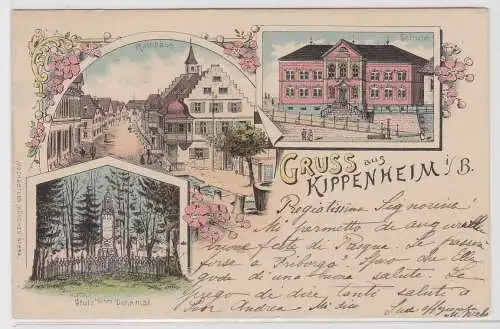 Rathhaus
Schule
GRUSS aus
KIPPENHEIM i/B.
Stulz'sches Denkmal.
Pregiatissima Signorina!
Mi permetto di augurarle
buone feste di Pasqua. Le passerà
forse a Friburgo? Spero che Ella
goda di una buona salute. La
prego di dire tanti saluti a
Sior Andrea. Mi dico
Sua